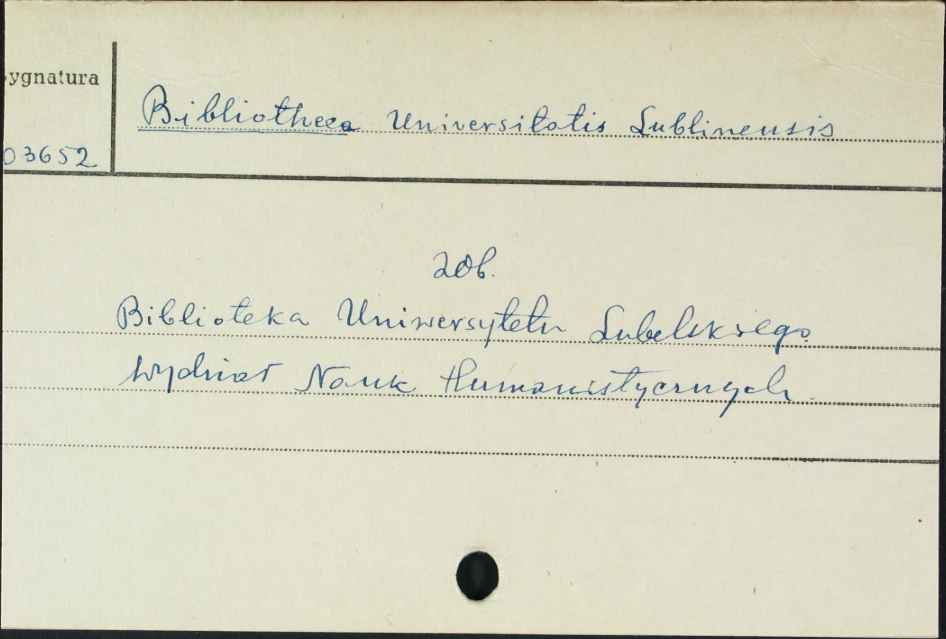 ygnatura
Bibliotheca Universitatis Lublinensis
03652
zob.
Biblioteka Uniwersytetu Lubelskiego
Wydział Nauk Humanistycznych